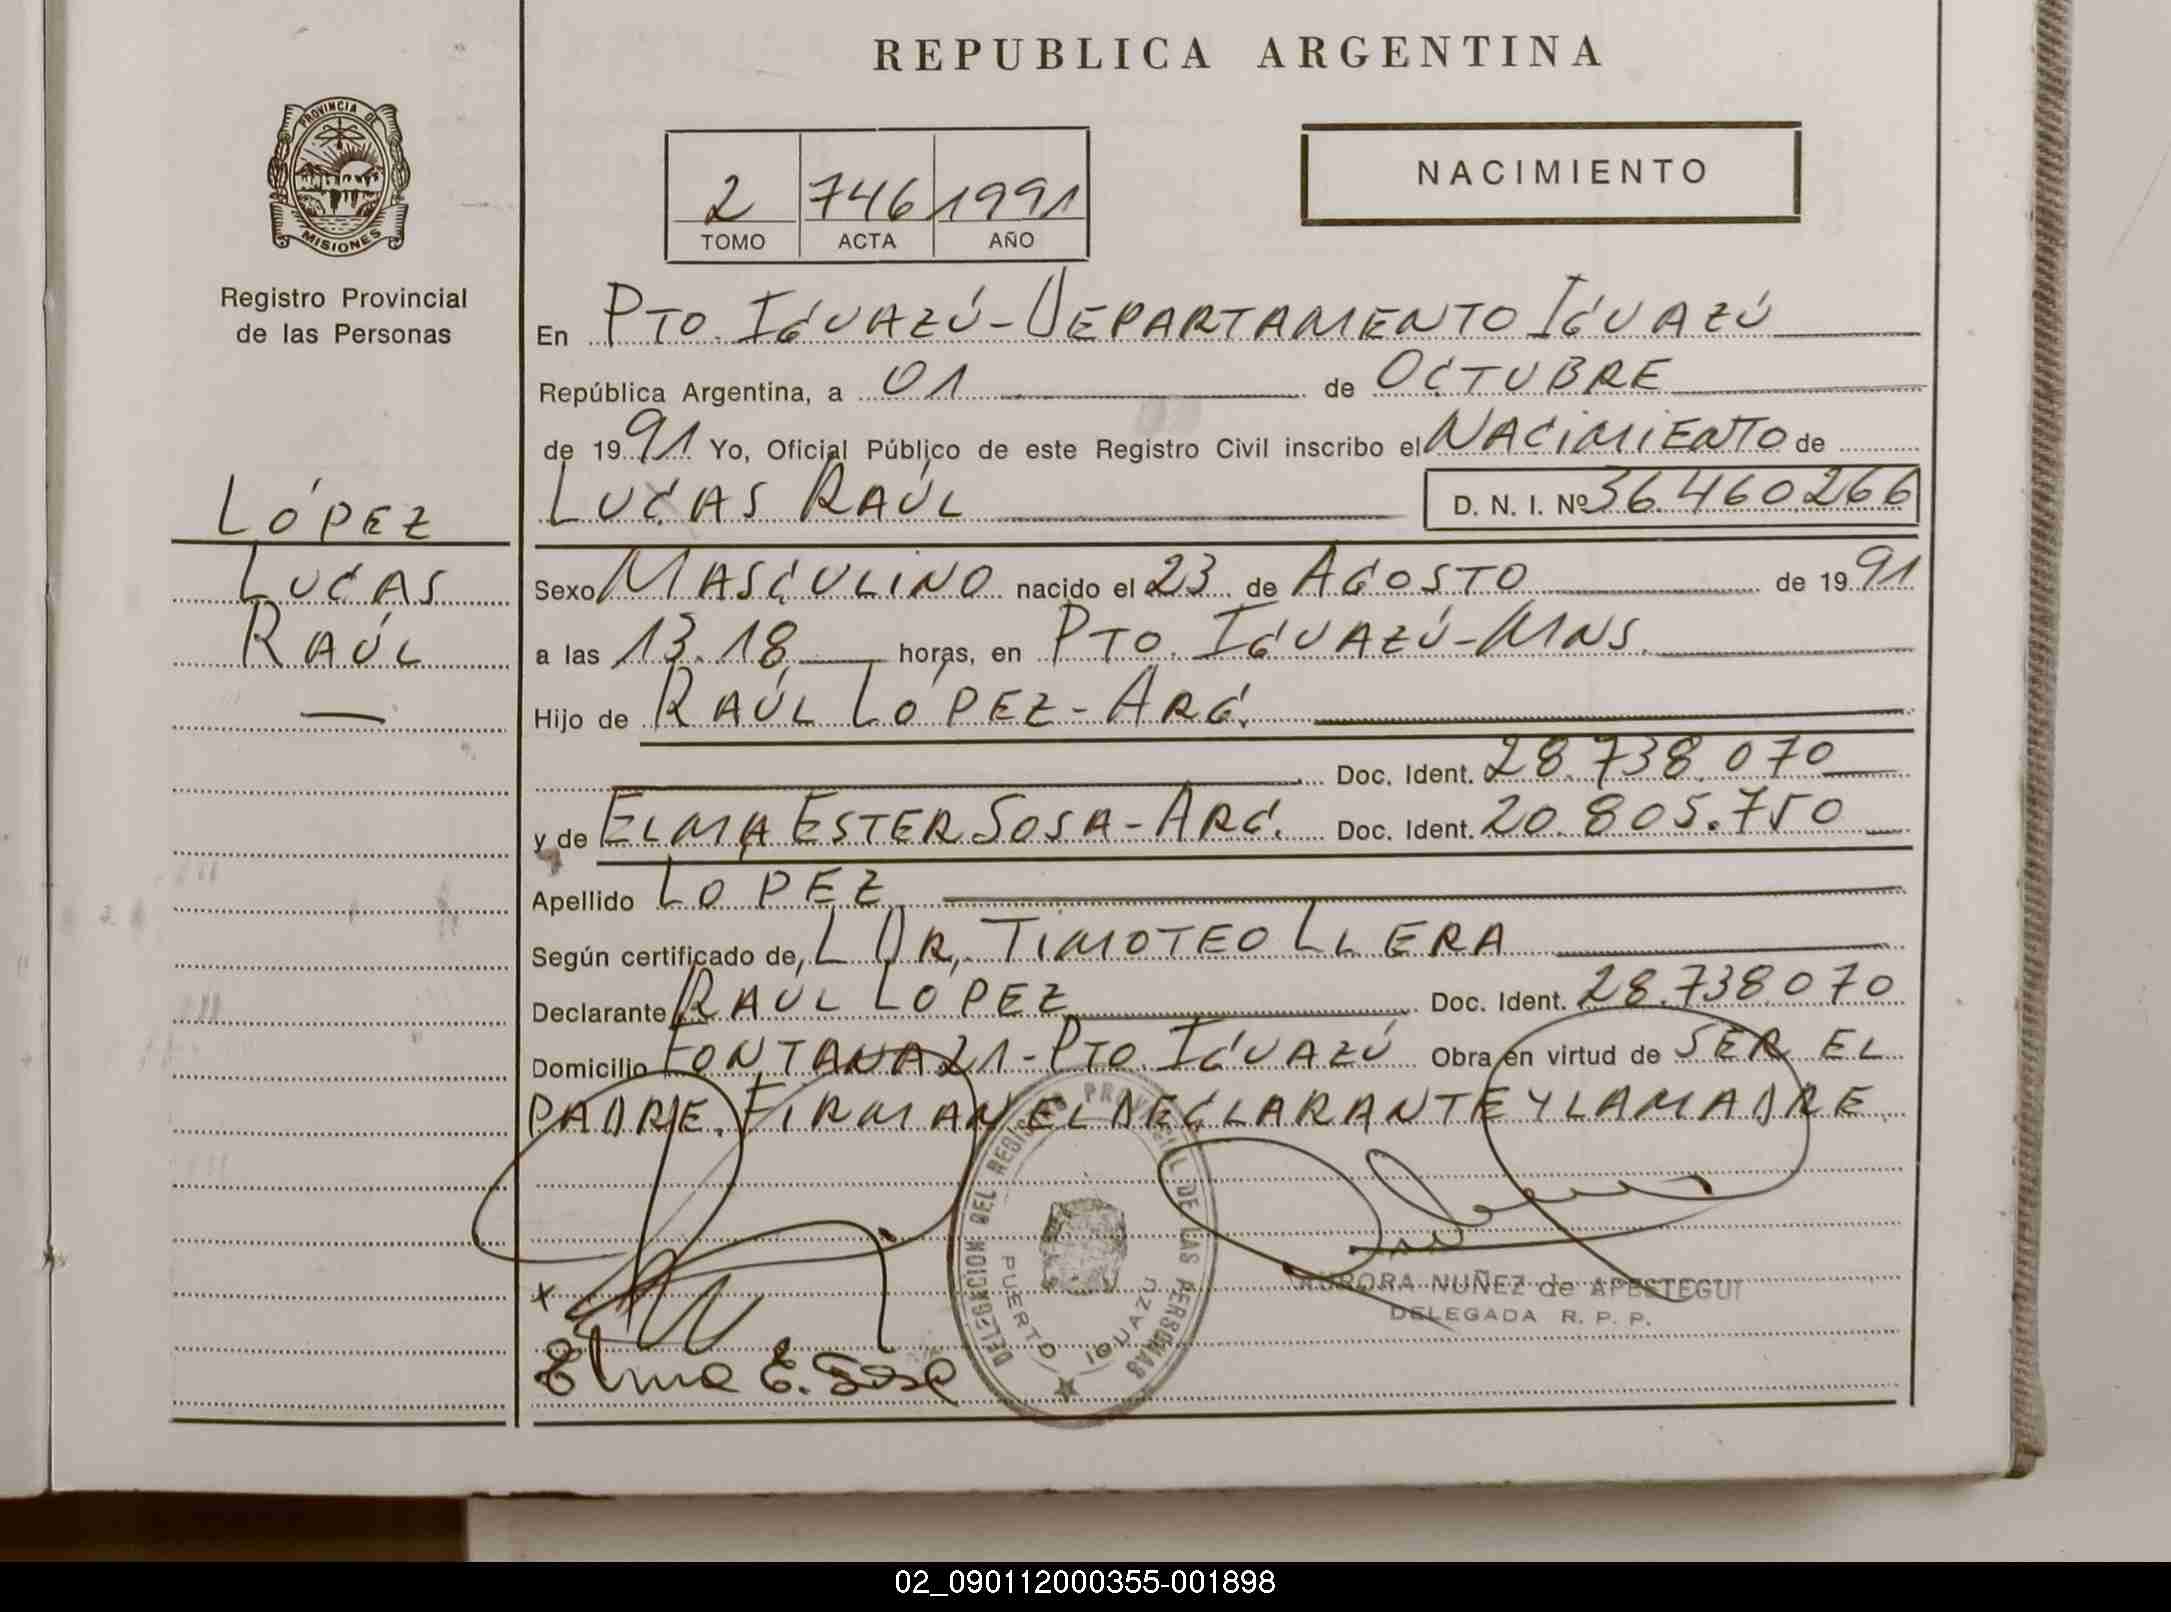 REPUBLICA ARGENTINA
PROVINCIA DE
MISIONES
Registro Provincial
de las Personas
2 746 1991
TOMO ACTA AÑO
NACIMIENTO
En PTO. IGUAZÚ - DEPARTAMENTO IGUAZÚ
República Argentina, a 01 de OCTUBRE
de 1991 Yo, Oficial Público de este Registro Civil inscribo el NACIMIENTO de
LUCAS RAÚL D. N. I. Nº 36.460.266
LÓPEZ
LUCAS
RAÚL
Sexo MASCULINO nacido el 23 de AGOSTO de 1991
a las 13.18 horas, en PTO. IGUAZÚ - MNS.
Hijo de RAÚL LÓPEZ - ARG.
Doc. Ident. 28.738.070
y de ELMA ESTER SOSA - ARG. Doc. Ident. 20.805.750
Apellido LOPEZ
Según certificado de, L DR, TIMOTEO LLERA
Declarante RAUL LÓPEZ Doc. Ident. 28.738070
Domicilio FONTANA 21 - PTO. IGUAZÚ Obra en virtud de SER EL
PADRE. FIRMAN EL DECLARANTE Y LA MADRE.
DELEGACION DEL REGISTRO PROVINCIAL DE LAS PERSONAS
PUERTO IGUAZU
AURORA NUÑEZ de APESTEGUI
DELEGADA R. P. P.
x
Elma E. Sosa
02_090112000355-001898